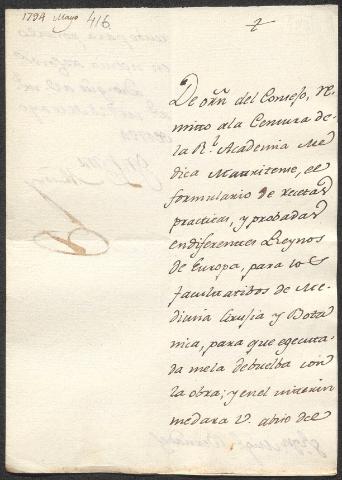 1794 Mayo 4/6
De orn del Consejo, re-
mito a la Censura de
la Rl. Academia Me-
dica Matritense, el
formulario de recetas
practicas, y probadas
en diferentes Reynos
de Europa, para los
facultatibos de Me-
dicina Cirusia y Bota
nica, para que egecuta-
da mela debuelba con
la obra; y en el interin
me dara V. abiso del